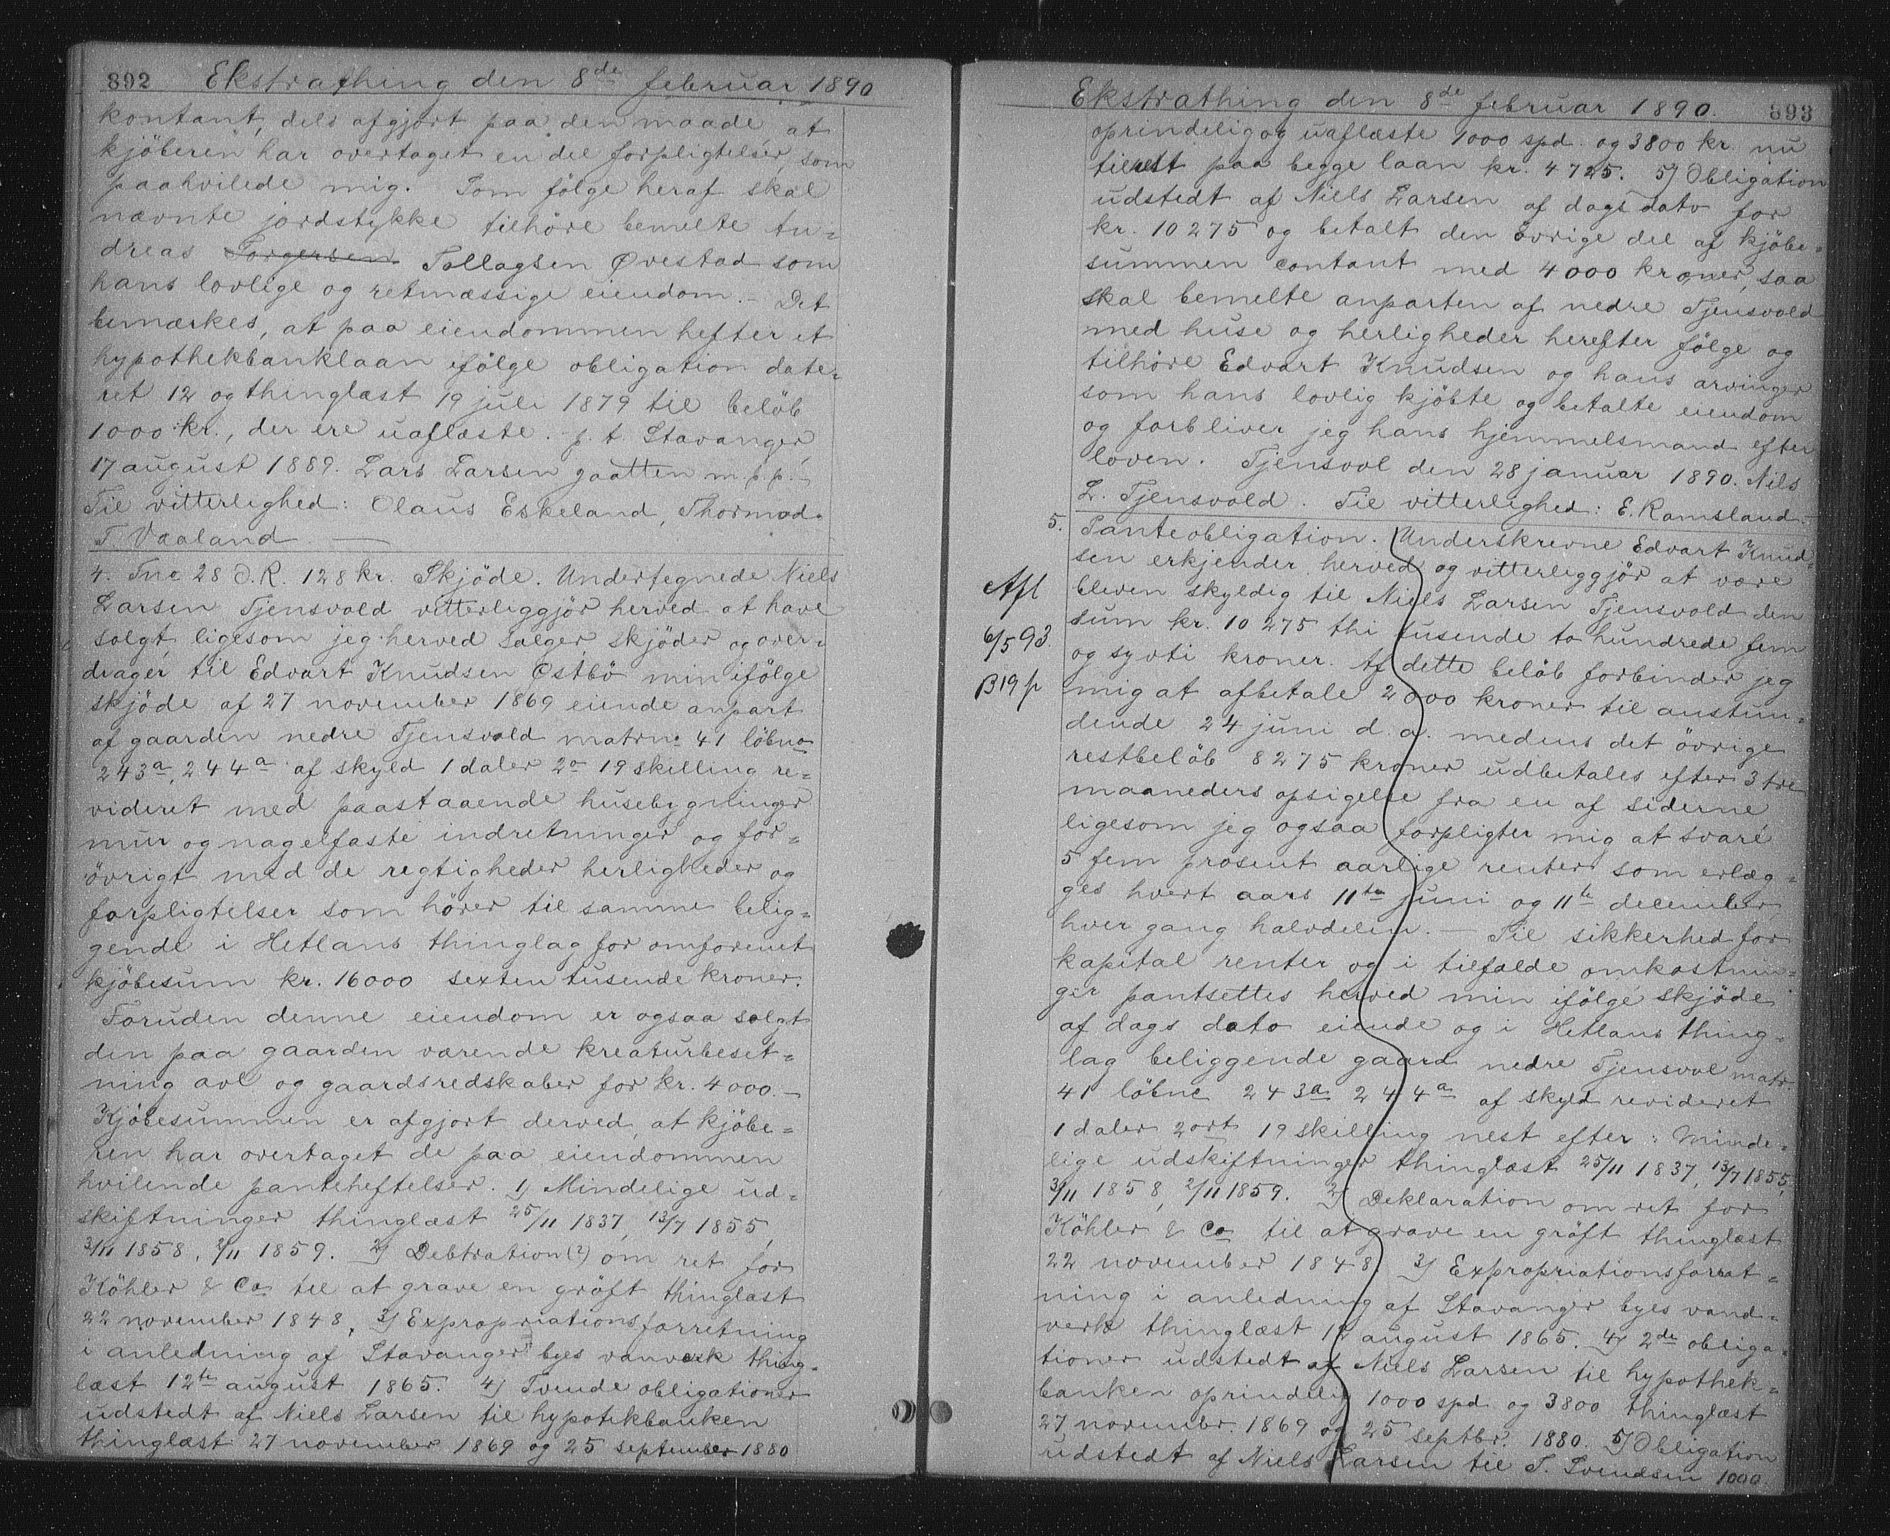 892 Ekstrathing den 8de februar 1890
kontant, dels afgjort paa den maade at
kjøberen har overtaget en del forpligtelser som
paahvilede mig. Som følge heraf skal
nævnte jordstykke tilhøre bemelte An-
dreas Torgersen Tollagsen Øvestad som
hans lovlige og retmæssige eiendom. - Det
bemærkes, at paa eiendommen hefter et
hypothekbanklaan ifølge obligation date-
ret 12 og thinglæst 19 juli 1879 til beløb
1000 kr., der ere uaflæste. - p.t. Stavanger,
17 august 1889. Lars Larsen gaatten m.p.p. -
Til vitterlighed: Olaus Eskeland, Thormod
T. Vaaland. —
4. Tne 28 D.R. 128 kr. Skjøde. Undertegnede Niels
Larsen Tjensvold vitterliggjør herved at have
solgt, ligesom jeg herved sælger, skjøder og over-
drager til Edvart Knudsen Østbø min ifølge
skjøde af 27 november 1869 eiende anpart
af gaarden nedre Tjensvold matrn: 41 løbno
243a, 244a af skyld 1 daler 2o 19 skilling re-
videret med paastaaende husebygninger
mur og nagelfaste indretninger og for-
øvrigt med de regtigheder herligheder og
forpligtelser som hører til samme belig-
gende i Hetlans thinglag for omforenet
kjøbesum kr. 16000 sexten tusende kroner.
Foruden denne eiendom er ogsaa solgt
den paa gaarden værende kreaturbeset-
ning avl og gaardsredskaber for kr. 4000. -
Kjøbesummen er afgjort derved, at kjøbe-
ren har overtaget de paa eiendommen
hvilende panteheftelser. 1) Mindelige ud-
skiftninger thinglæst 25/11 1837, 13/7 1855,
3/11 1858, 2/11 1859. 2) Debtration (?) om ret for
Köhler & Co til at grave en grøft thinglæst
22 november 1848, 3) Expropriationsforretning
i anledning af Stavanger byes vanverk thing-
læst 12te august 1865. 4) Tvende obligationer
udstedt af Niels Larsen til hypotekbanken
thinglæst 27 november 1869 og 25 september 1880
Ekstrathing den 8de februar 1890. 893
oprindelig og uaflæste 1000 spd. og 3800 kr. nu
tilrest paa begge laan kr. 4725. 5) Obligation
udstedt af Niels Larsen af dags dato for
kr. 10275 og betalt den øvrige del af kjøbe-
summen contant med 4000 kroner, saa
skal bemelte anparten af nedre Tjensvold
med huse og herligheder herefter følge og
tilhøre Edvart Knudsen og hans arvinger
som hans lovlig kjøbte og betalte eiendom
og forbliver jeg hans hjemmelsmand efter
loven. Tjensvol den 28 januar 1890. Nils
L. Tjensvold. Til vitterlighed: E. Ramsland. -
5. Panteobligation. Underskrevne Edvart Knud-
sen erkjender herved og vitterliggjør at være
Afl
bleven skyldig til Niels Larsen Tjensvold den
sum kr. 10275 thi tusende to hundrede fem
6/5 93.
og syvti kroner. Af dette beløb forbinder jeg
B19 p
mig at afbetale 2000 kroner til anstun-
dende 24 juni d. a. medens det øvrige
restbeløb 8275 kroner udbetales efter 3 tre
maaneders opsigelse fra en af siderne
ligesom jeg ogsaa forpligter mig at svare
5 fem prosent aarlige renter som erlæg-
ges hvert aars 11te juni og 11te december
hver gang halvdelen. - Til sikkerhed for
kapital renter og i tilfælde omkostnin-
ger pantsettes herved min ifølge skjøde
af dags dato eiende og i Hetlans thing-
lag beliggende gaard nedre Tjensvol matr.
41 løbne 243a 244a af skyld revideret
1 daler 2ort 19 skilling nest efter: Minde-
lige udskiftninger thinglæst 25/11 1837, 13/7 1855,
3/11 1858, 2/11 1859. 2) Deklaration om ret for
Köhler & Co til at grave en grøft thinglæst
22 november 1848 3) Expropriationsforret-
ning i anledning af Stavanger byes vand-
verk thinglæst 12 august 1865. 4) 2de obliga-
tioner udstedt af Niels Larsen til hypothek-
banken oprindelig 1000 spd og 3800 thinglæst
27 novembr. 1869 og 25 septbr. 1880. 5) Obligation
udstedt af Niels Larsen til T. Svendsen 1000.